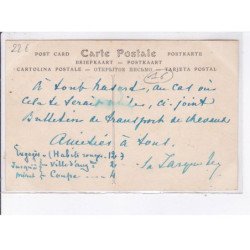 22 €
POST CARD Carte Postale POSTKARTE
BRIEFKAART — POSTKAART
CARTOLINA POSTALE — ОТКРЫТОЕ ПИСЬМО — TARJETA POSTAL
A tout hasard, au cas où
cela te serait utile, ci-joint
Bulletin de transport de chevaux
Amitiés à tous.
Engagés (Habits rouges 127
Ville d'
Coupe 4